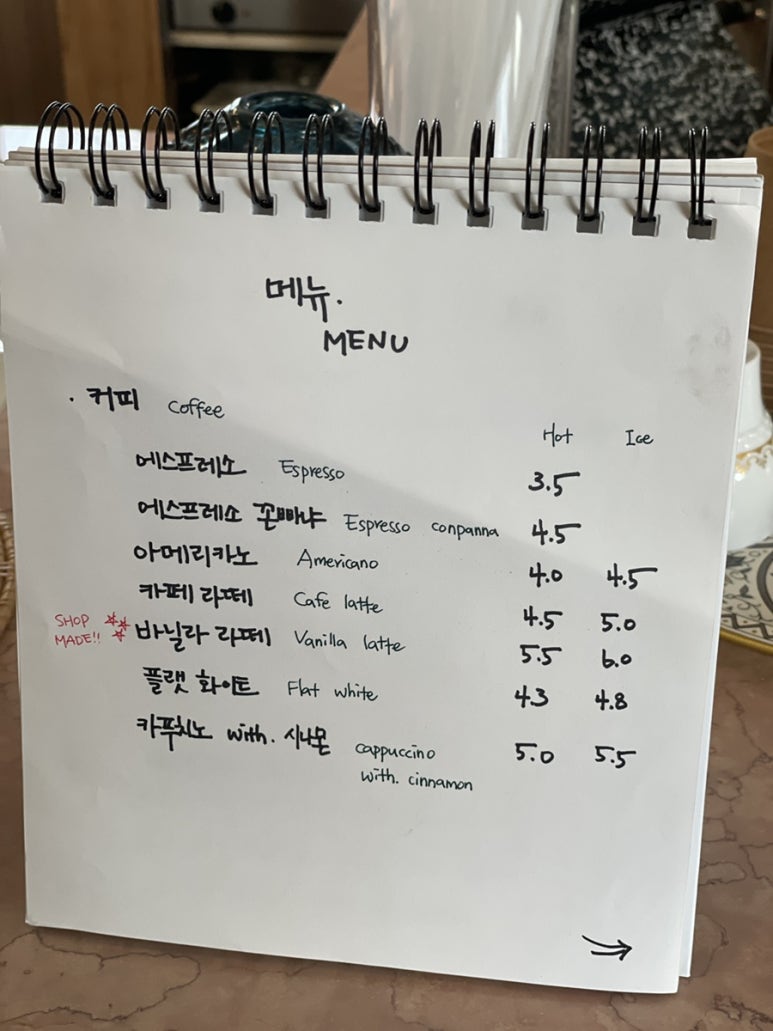 메뉴.
MENU
· 커피 coffee
Hot Ice
에스프레소 Espresso 3.5
에스프레소 꼰빠냐 Espresso conpanna 4.5
아메리카노 Americano 4.0 4.5
카페 라떼 Cafe latte 4.5 5.0
SHOP MADE!! 바닐라 라떼 Vanilla latte 5.5 6.0
플랫 화이트 Flat white 4.3 4.8
카푸치노 with. 시나몬 cappuccino 5.0 5.5
with. cinnamon